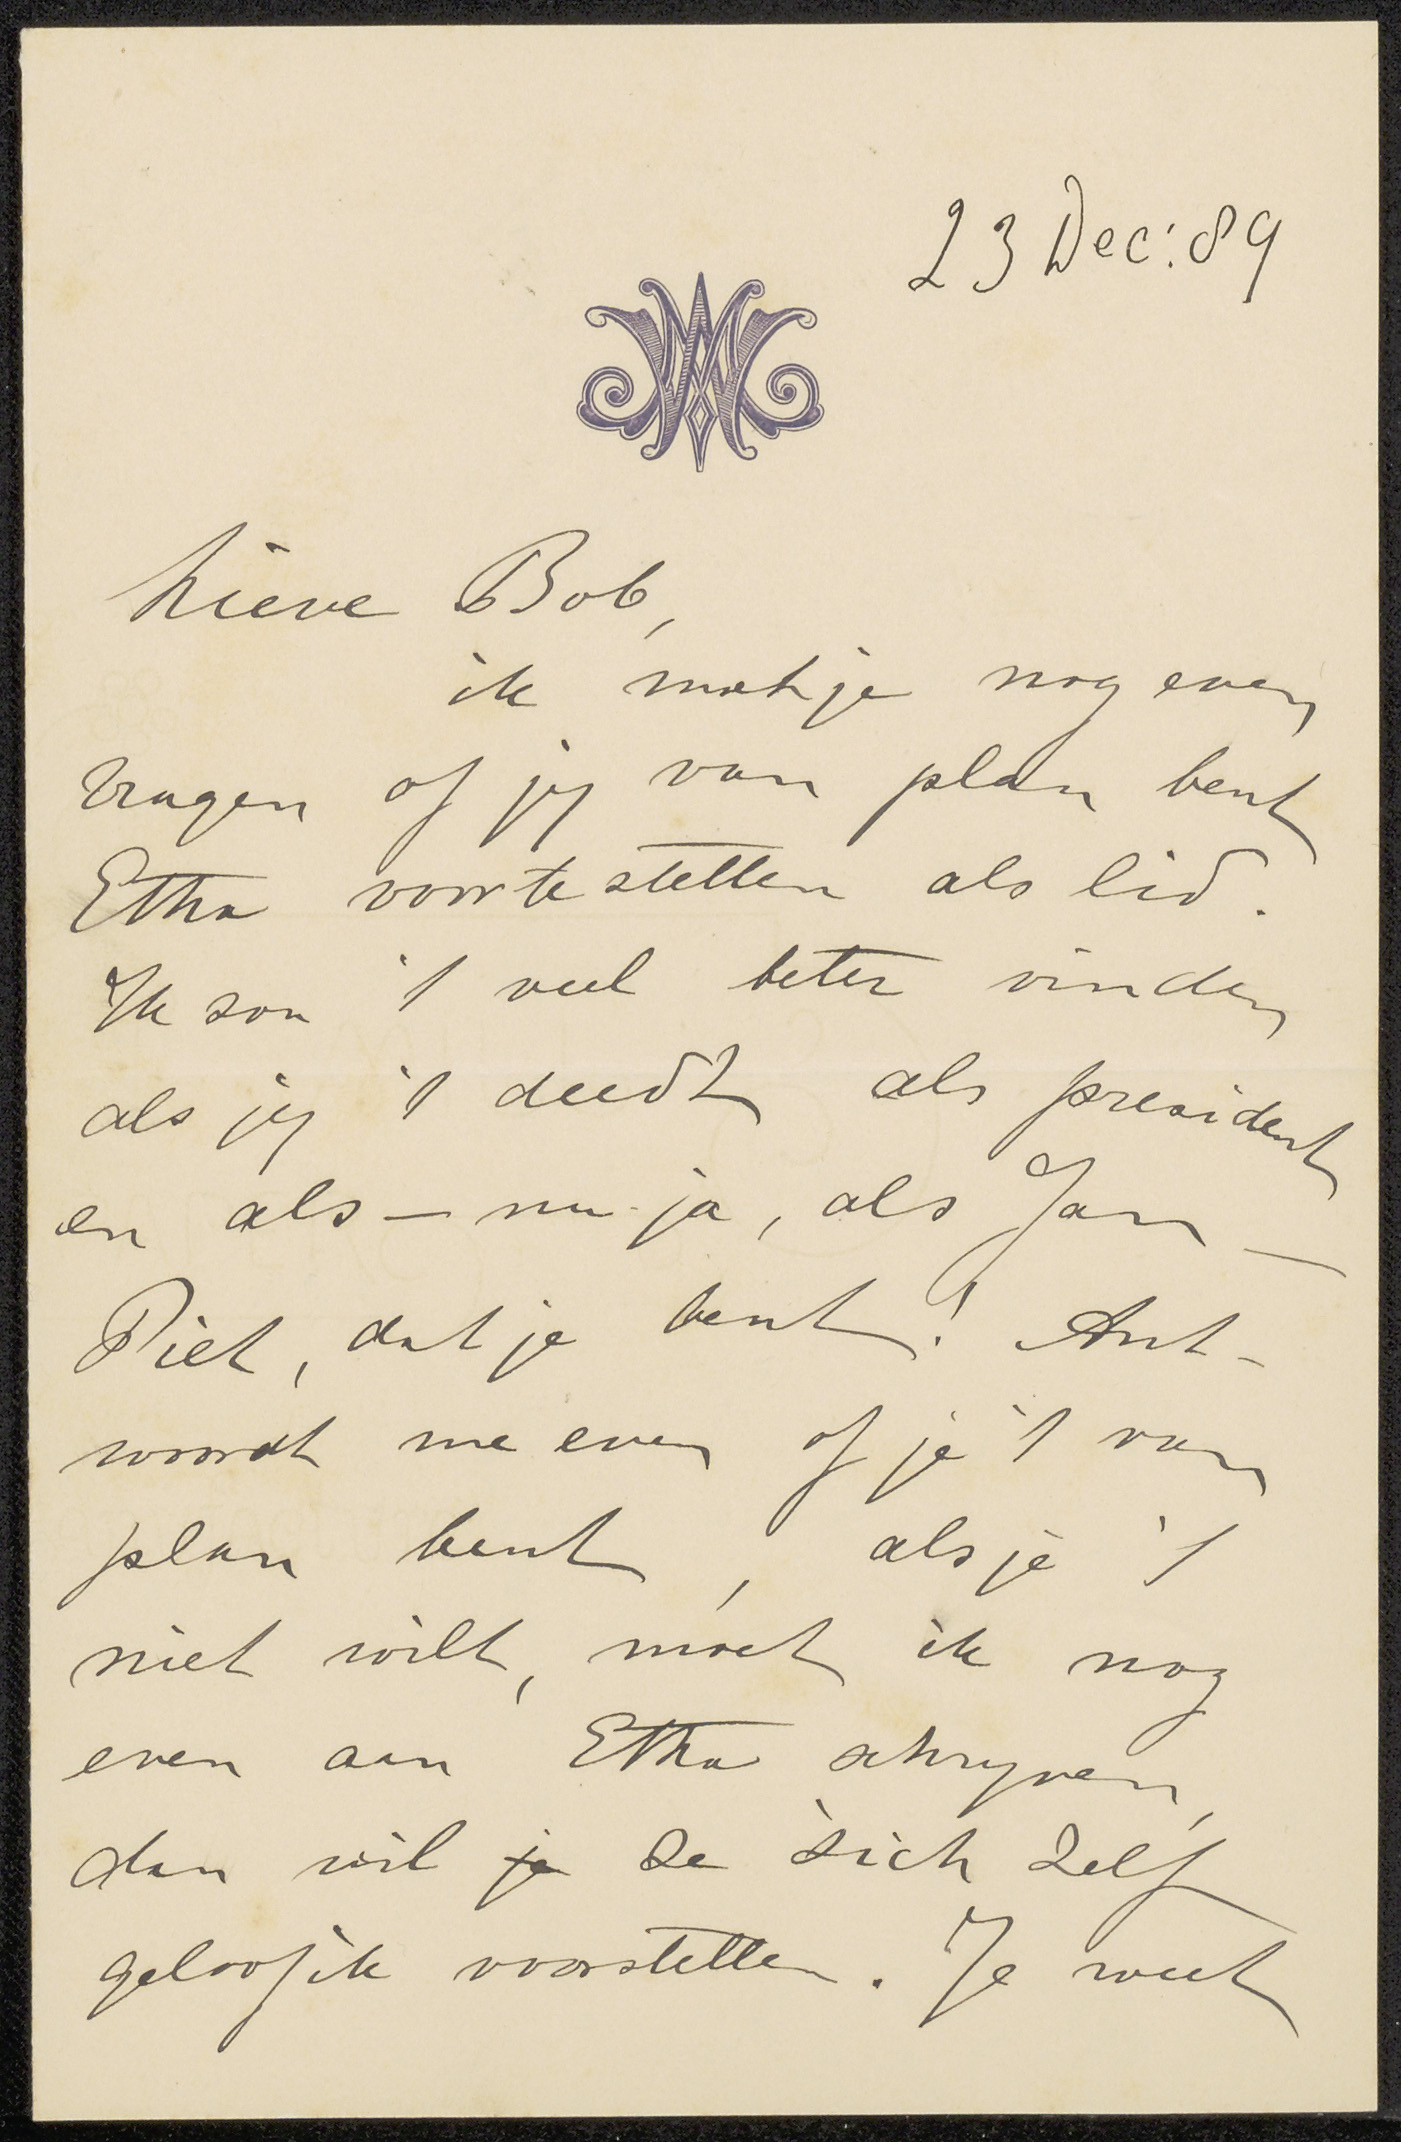 23 Dec: 89
Lieve Bob,
ik moet je nog even
vragen of jy van plan bent
Etha voor te stellen als lid.
Ik zou 't veel beter vinden
als jy 't deedt als president
en als — nu ja, als Jan —
Piet, dat je bent! Ant-
woordt me even of je 't van
plan bent, als je 't
niet wilt, moet ik nog
even aan Etha schryven,
dan wil je ze zich zelf
geloof ik voorstellen. Je weet